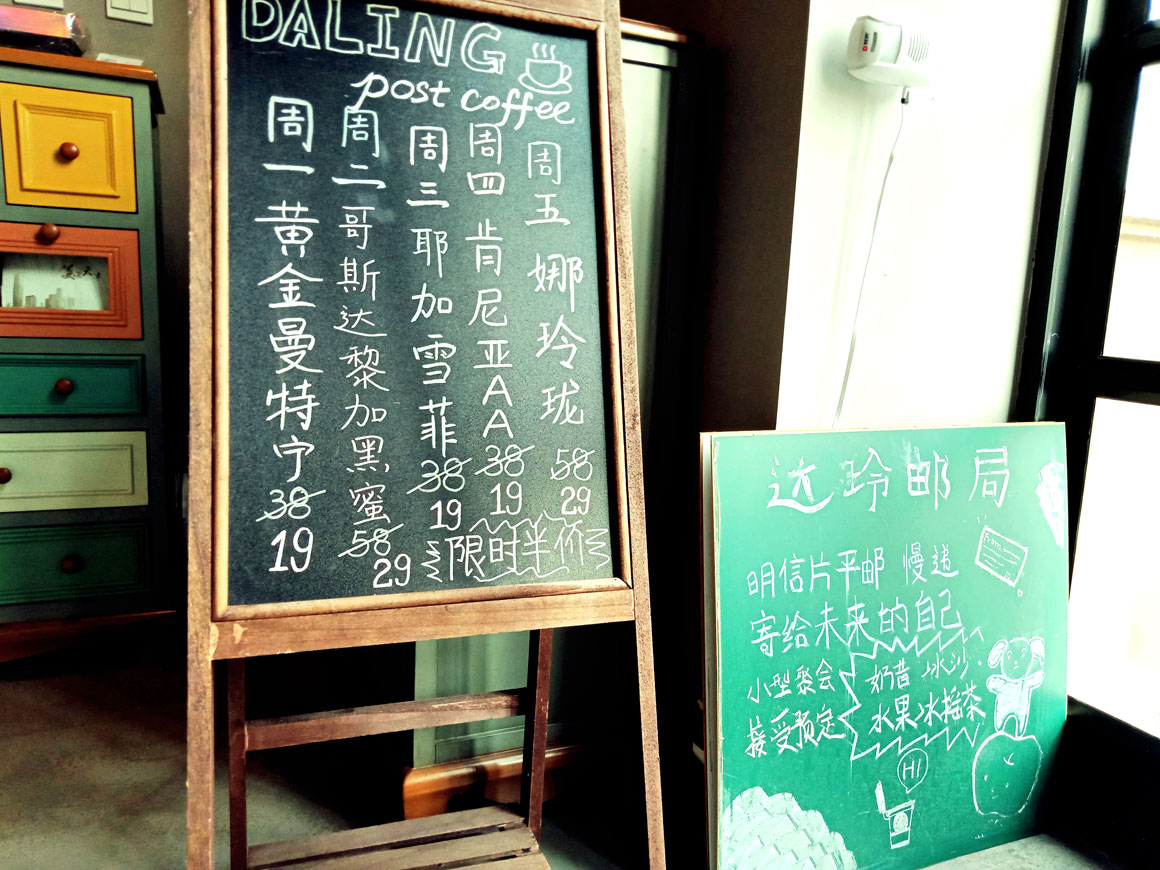 DALING
post coffee
周一 黄金曼特宁 38 19
周二 哥斯达黎加黑蜜 58 29
周三 耶加雪菲 38 19
周四 肯尼亚AA 38 19
周五 娜玲珑 58 29
限时半价
达玲邮局
明信片平邮 慢递
寄给未来的自己
From
小型聚会
接受预定
奶昔 冰沙
水果冰摇茶
HI